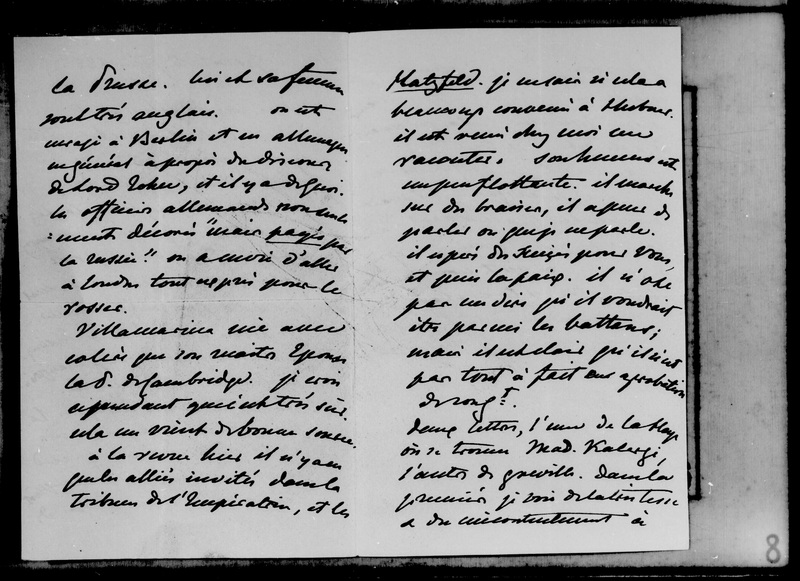 la Prusse. lui et sa femme
sont très anglais. on est
enragé à Berlin et en allemagne
en général à propos du discours
de Lord Loker, et il y a de quoi.
les officiers allemands non seule
=ments décorés "mais payés par
la russie"! on a envie d'aller
à Londres tout exprès pour le
rosser.
Villamarina nie avec
colère que son maitre Epouse
la P. de Cambridge. je crois
cependant que c'est très sûr.
cela me vient de bonne source.
à la revue hier il n'y a eu
que les alliés invités dans la
tribune de l'Impératrice, et les
Hatzfeld. je ne sais si cela a
beaucoup convenu à Hubner.
il est venu chez moi me
raconter. son humeur est
un peu flottante. il marche
sur des braises, il a peur de
parler ou que je ne parle.
il a peu des égards pour vous,
et puis la paix. il n'ose
pas me dire qu'il voudrait
être parmi les battans;
mais il est clair qu'il n'est
pas tout à fait en approbation
de son gt.
deux lettres, l'une de la Haye
où se trouve Mad. Kalergi,
l'autre de greville. Dans la
première je vois de la tristesse
a du mécontentement à
8